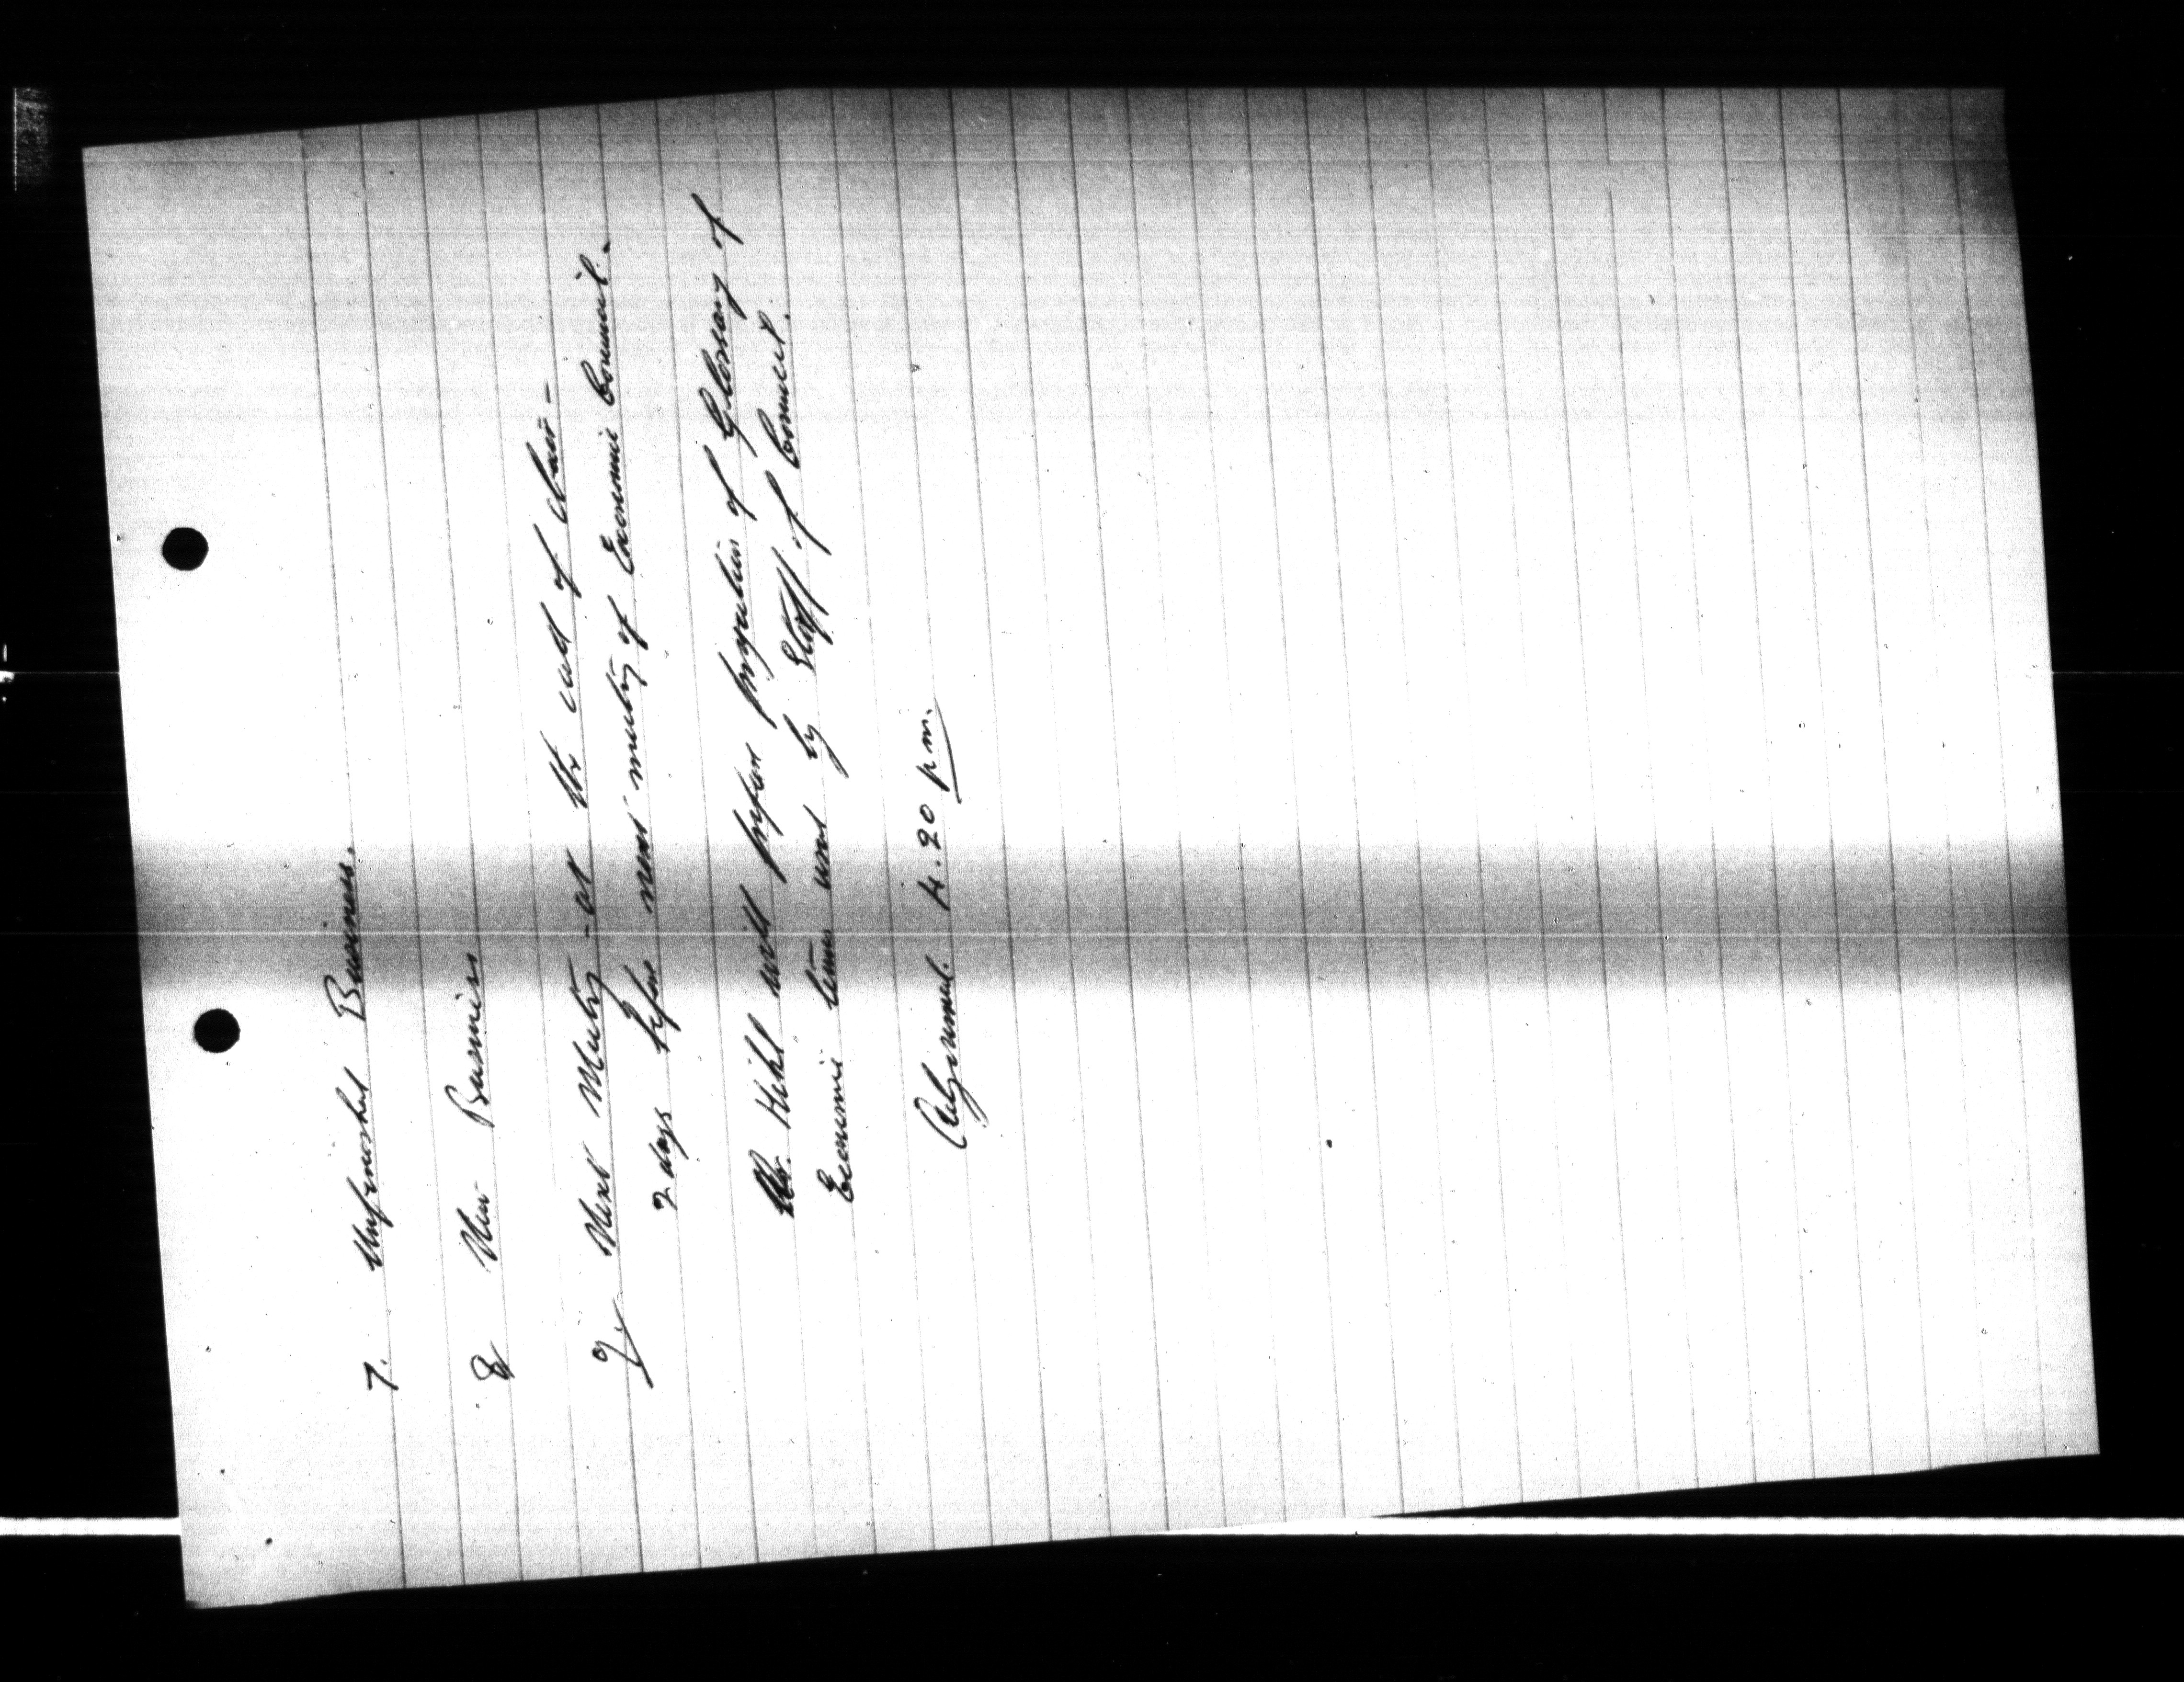 7. Unfinished Business.
8 New Business
9 Next Meeting - at the call of chair -
2 days before next meeting of Economic Council. -
Mr. Kihl will prepare preparation of Glossary of
Economic terms used by Staff of Council.
Adjourned. 4.20 p.m.